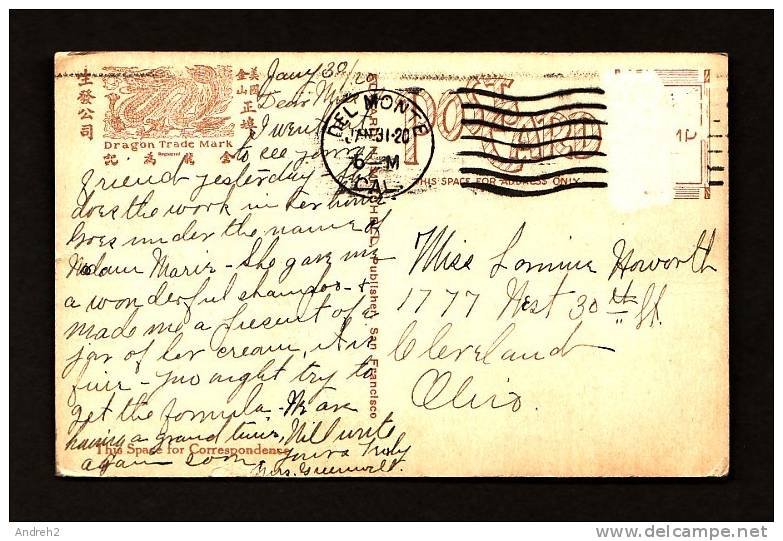 生發公司
美國
金山正埠
Dragon Trade Mark
Registered
金龍為記
Jany 30/20
Dear Miss
I went
to see your
friend yesterday She
does the work in her home
Goes under the name of
Madam Marie - She gave me
a wonderful shampoo - &
made me a present of a
jar of her cream, it is
fine - you might try to
get the formula - We are
having a grand time, Will write
again soon, Yours Truly
Mrs.
This Space for Correspondence
Publisher, San Francisco
DEL MONTE
JAN 31-20
6-M
CAL.
POST CARD
THIS SPACE FOR ADDRESS ONLY
Miss Howorth
1777 West 30th St.
Cleveland
Ohio.
Andreh2
www.delcampe.net